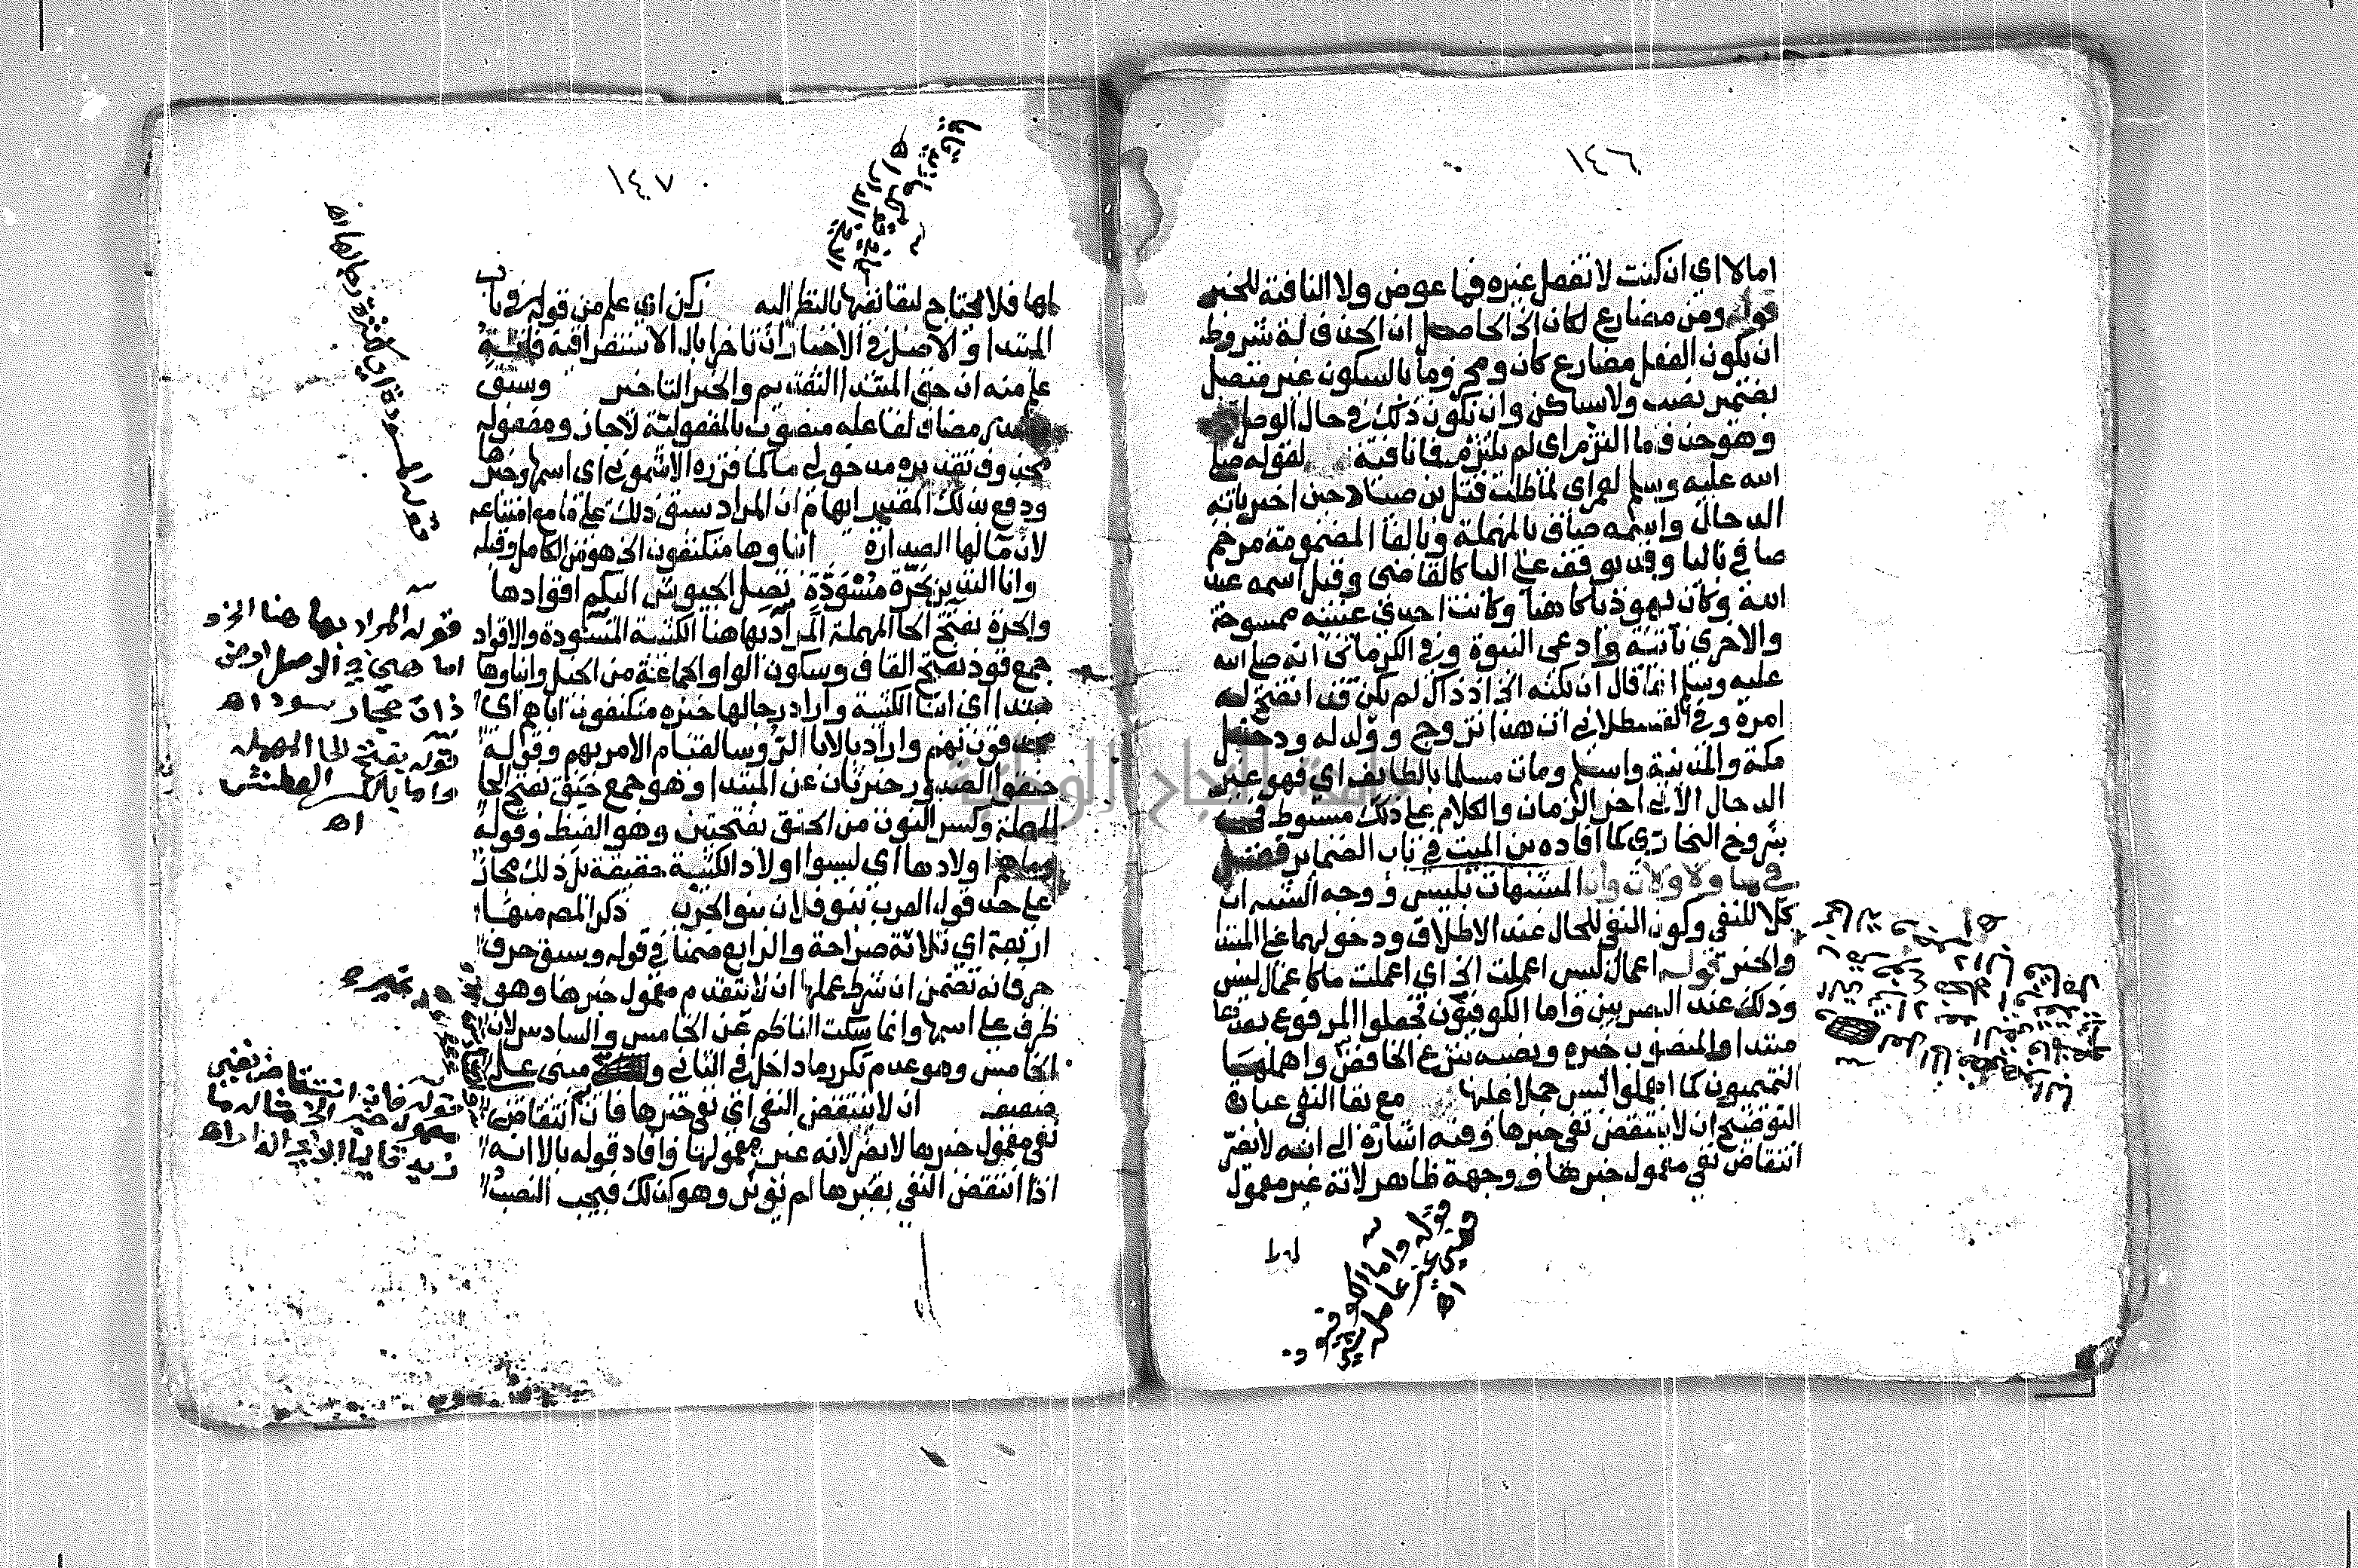 ١٤٦
اما لا اى ان كنت لا تفعل غيره فما عوض ولا النافية للخبر
قوله ومن مضارع لكان الخ الحاصل ان الحذف له شروط
ان يكون الفعل مضارع كان ومجزوما بالسكون غير متصل
بضمير نصب ولا ساكن وان يكون ذلك في حال الوصل
وهو حذف ما التزم اى لم يلتزم فما نافية لقوله صلى
الله عليه وسلم لعمر اى لما طلب قتل بن صياد حين اخبر بانه
الدجال واسمه صاف بالمهملة وبالفا المضمومة مرخم
صافي باليا وقد يوقف على اليا كالقاضى وقيل اسمه عبد
الله وكان يهوذيا كاهنا وكانت احدى عينيه ممسوحة
والاخرى ناتئة وادعى النبوة وفي الكرمانى انه صلى الله
عليه وسلم انما قال ان يكنه الخ اذ ذاك لم يكن قد اتضح له
امره وفي القسطلاني ان هذا تزوج وولد له ودخل
مكة والمدينة واسلم ومات مسلما بالطايف اي فهو غير
الدجال الآتى اخر الزمان والكلام على ذلك مبسوط في
شروح البخاري كما افاده بن الميت في باب الضماير فصل
في ما ولا ولات وان المشبهات بليس ووجه الشبه ان
كلا للنفى وكون النفى للحال عند الاطلاق ودخولهما على المبتدا
والخبر قوله اعمال ليس اعملت الخ اي اعملت ما كاعمال ليس
وذلك عند البصريين واما الكوفيون فجعلوا المرفوع بعدها
مبتدا والمنصوب خبره ونصبه بنزع الخافض واهملها
التميميون كما اهملوا ليس حملا عليها مع بقا النفى عبارة
التوضيح ان لا ينتقض نفى خبرها وفيه اشارة الى انه لا يضر
انتقاض نفي معمول خبرها ووجهة ظاهر لانه غير معمول
لها
قوله واما الكوفيون
١٤٧
لها فلا يحتاج لبقا نفيها بالنظر اليه زكن اى علم من قوله في باب
المبتدا والاصل في الاخبار ان تاخرا بالاستقرا فيه فانه
علم منه ان حق المبتدا التقديم والخبر التاخير وسبق
مصدر مضاف لفاعله منصوب بالمفعولية لاجاز ومفعوله
محذوف تقديره مدخولى ما كما قرره الاشموني اى اسمها وخبرها
ودفع بذلك المقدر ايهام ان المراد سبق ذلك على ما مع امتناعه
لان ما لها الصدارة ابناوها متكنفون الخ هو من الكامل وقبله
وانا النذير بحرة مسودة تصل الجيوش اليكم اقوادها
والحرة بفتح الحا المهملة المراد بها هنا الكتيبة المسودة والاقواد
جمع قود بفتح القاف وسكون الواو الجماعة من الخيل وابناوها
مبتدا اى ابنا الكتيبة واراد رجالها خبره متكنفون اباهم اى
محدقون بهم واراد بالابا الروسا لقيام الامر بهم وقوله
حنقوا الصدور خبر ثان عن المبتدا وهو جمع حنق بفتح الحا
المهملة وكسر النون من الحنق بفتحتين وهو الغيظ وقوله
وما هم اولادها اى ليسوا اولاد الكتيبة حقيقة بل ذلك مجاز
على حد قول العرب بنو فلان بنو الحرب ذكر المص منها
اربعة اي ثلاثة صراحة والرابع ضمنا في قوله وسبق حرف
جر فانه تضمن ان شرط عملها ان لا يتقدم معمول خبرها وهو
ظرف على اسمها وانما سكت الناظم عن الخامس والسادس لان
الخامس وهو عدم تكرر ما داخل في الثاني و مبنى على
ضعيف ان لا ينتقض النفى اي نفى خبرها فان انتقاض
نفى معمول خبرها لا يضر لانه غير معمولها وافاد قوله بالا انه
اذا انتقض النفى بغيرها لم يؤثر وهو كذلك فيجب النصب
قوله المسودة اى لكثرة رجالها اه
قوله المراد بها هنا الخ و
اما هي في الاصل ارض
ذات حجار سود اه
قوله بفتح الحا المهمله
واما بالكسر العطش
اه
قوله فان انتقاض نفى
معمول خبر الخ مثاله ما
زيد قايما الا في الدار اه
جامعة النجاح الوطنية